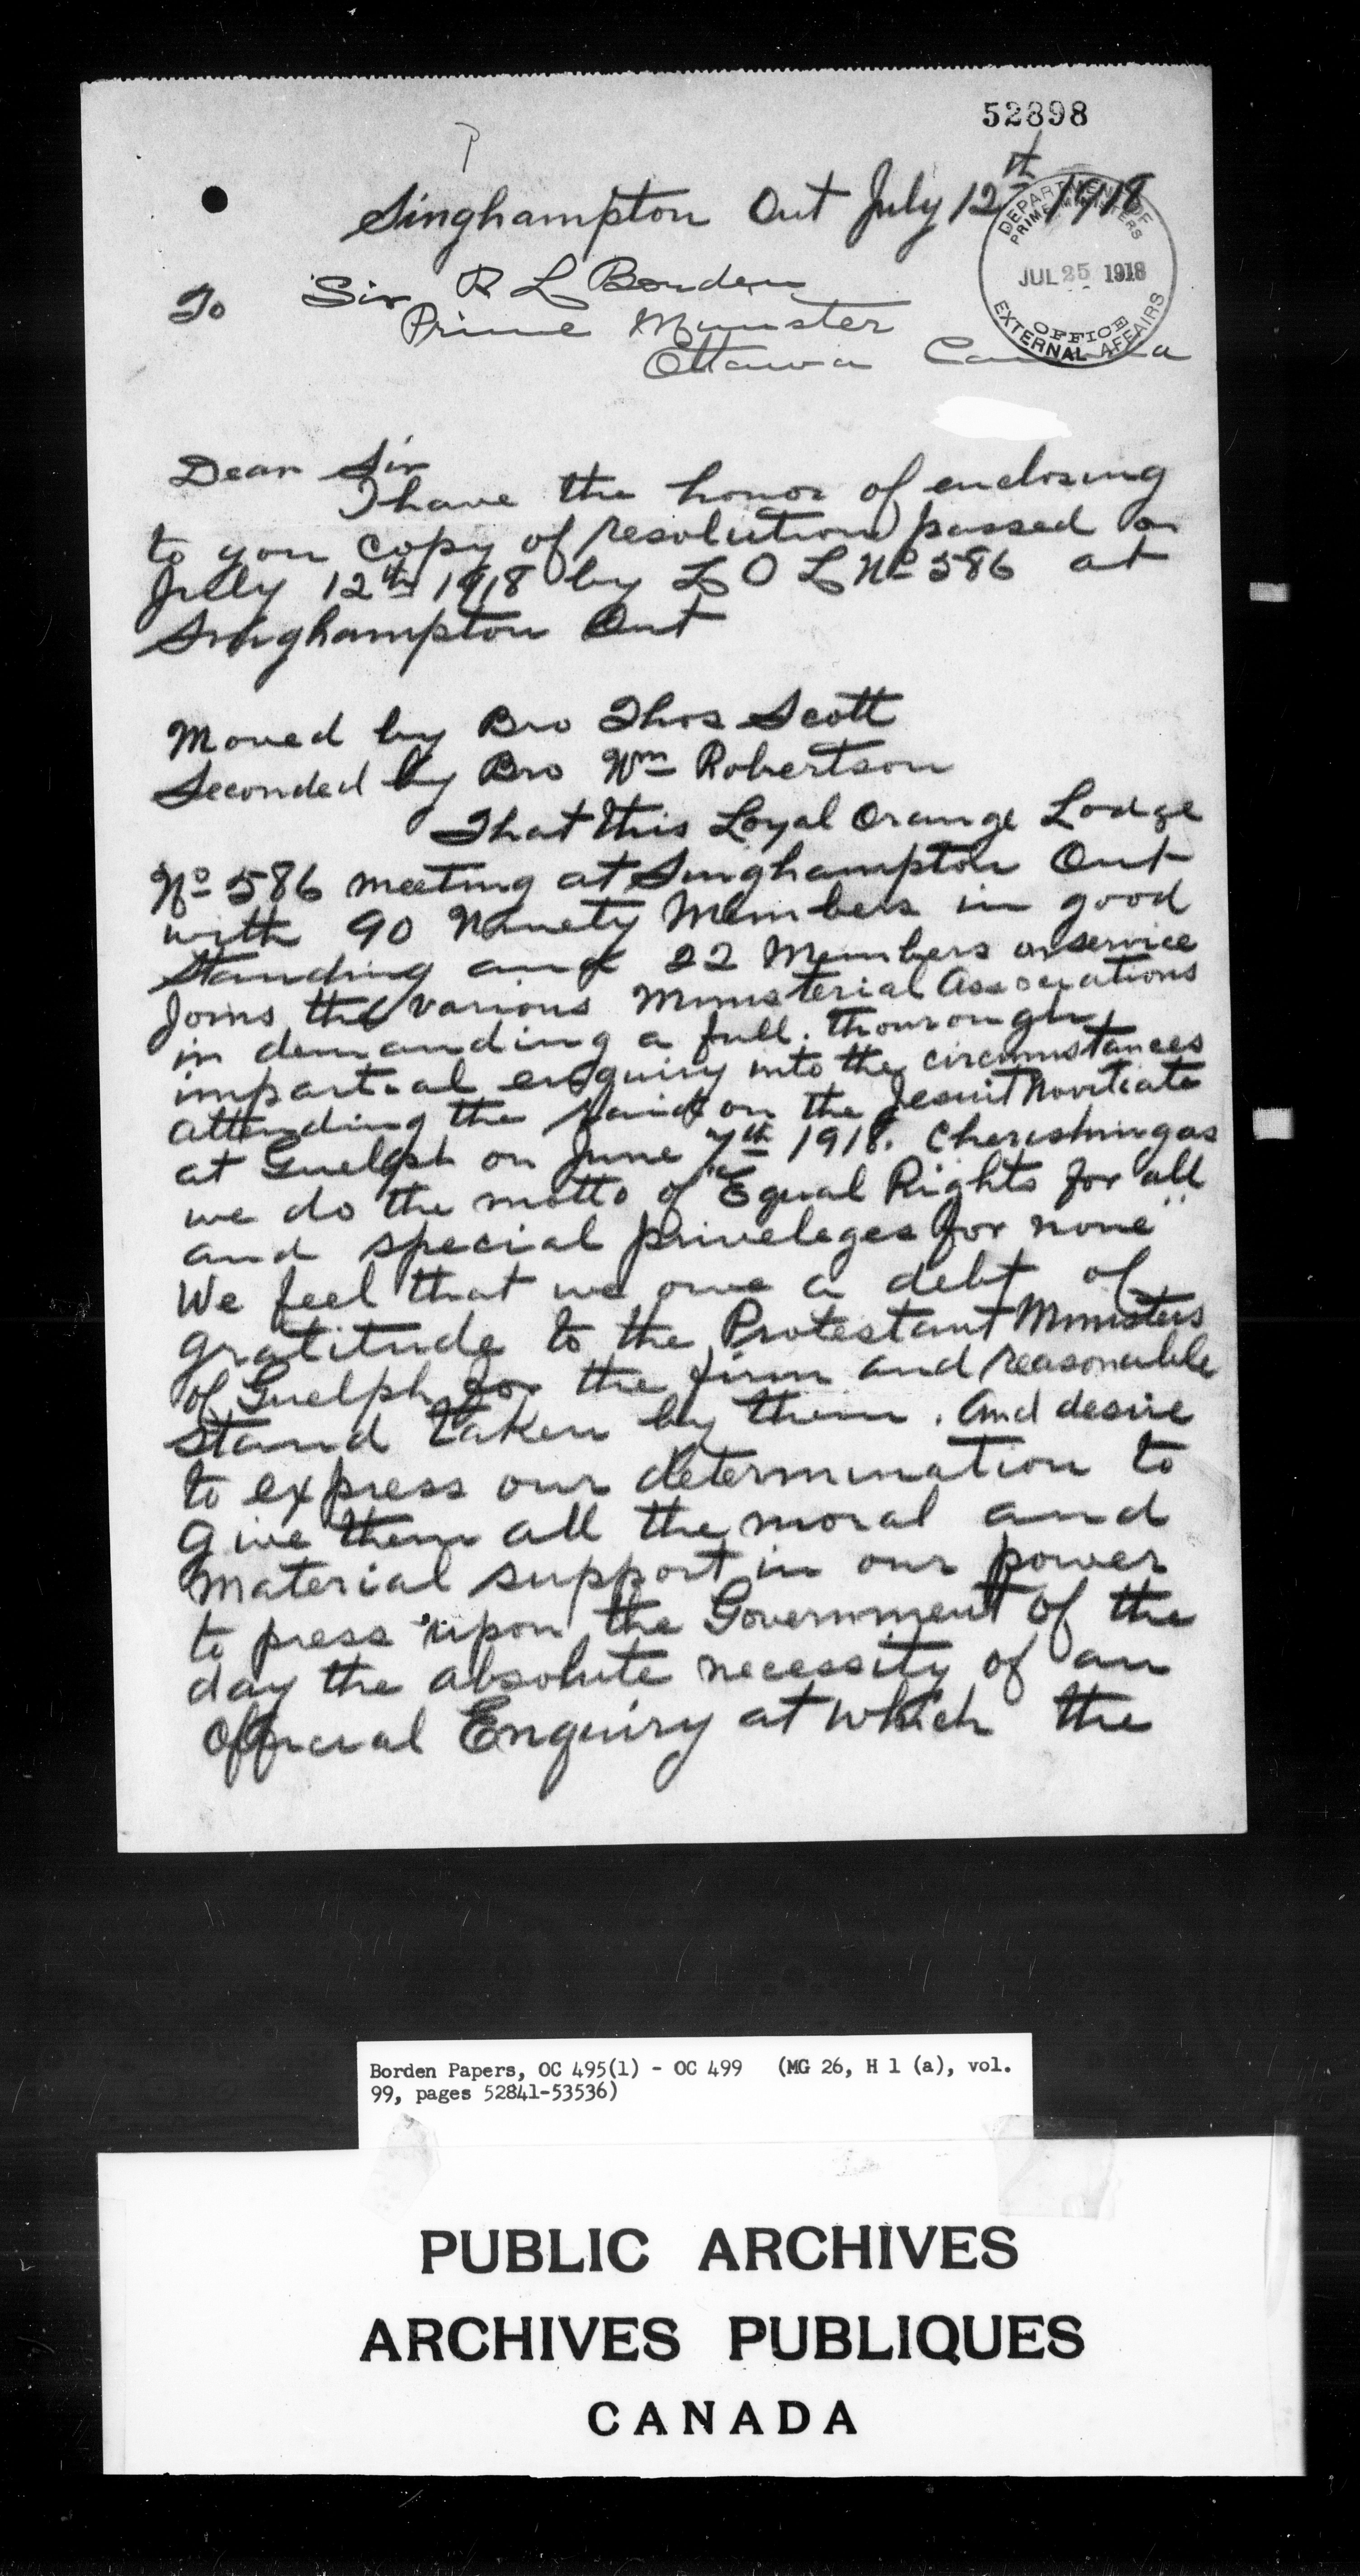 52898
Singhampton Ont July 12th 1918
DEPARTMENT OF
PRIME MINISTERS
JUL 25 1918
OFFICE
EXTERNAL AFFAIRS
To Sir R L Borden
Prime Minister
Ottawa Canada
Dear Sir
I have the honor of enclosing
to you copy of resolution passed on
July 12th 1918 by L O L No 586 at
Singhampton Ont
Moved by Bro Thos Scott
Seconded by Bro Wm Robertson
That this Loyal Orange Lodge
No 586 meeting at Singhampton Ont
with 90 Ninety Members in good
standing and 22 Members on service
Joins the various Ministerial Associations
in demanding a full. thourough
impartial enquiry into the circumstances
attending the raid on the Jesuit Novitiate
at Guelph on June 7th 1918. Cherishing as
we do the motto of "Equal Rights for all
and special priveleges for none"
We feel that we owe a debt of
gratitude to the Protestant Ministers
of Guelph for the firm and reasonable
stand taken by them. And desire
to express our determination to
give them all the moral and
material support in our power
to press upon the Government of the
day the absolute necessity of an
Official Enquiry at which the
Borden Papers, OC 495(1) - OC 499 (MG 26, H 1 (a), vol.
99, pages 52841-53536)
PUBLIC ARCHIVES
ARCHIVES PUBLIQUES
CANADA